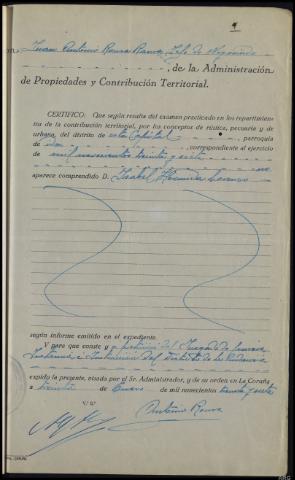 Juan Antonio Roura Jefe de Negociado
, de la Administración
de Propiedades y Contribución Territorial.
CERTIFICO: Que según resulta del examen practicado en los repartimien-
tos de la contribución territorial, por los conceptos de rústica, pecuaria y de
urbana, del distrito de esta Capital, parroquia
de, correspondiente al ejercicio
de mil novecientos treinta y siete no
aparece comprendido D. Isabel
según informe emitido en el expediente.
Y para que conste y a petición del Juzgado de primera
Instancia e Instrucción del Distrito de la Audiencia
expido la presente, visada por el Sr. Administrador, y de su orden en La Coruña
a treinta de Enero de mil novecientos treinta y siete
V.º B.º
Antonio Roura